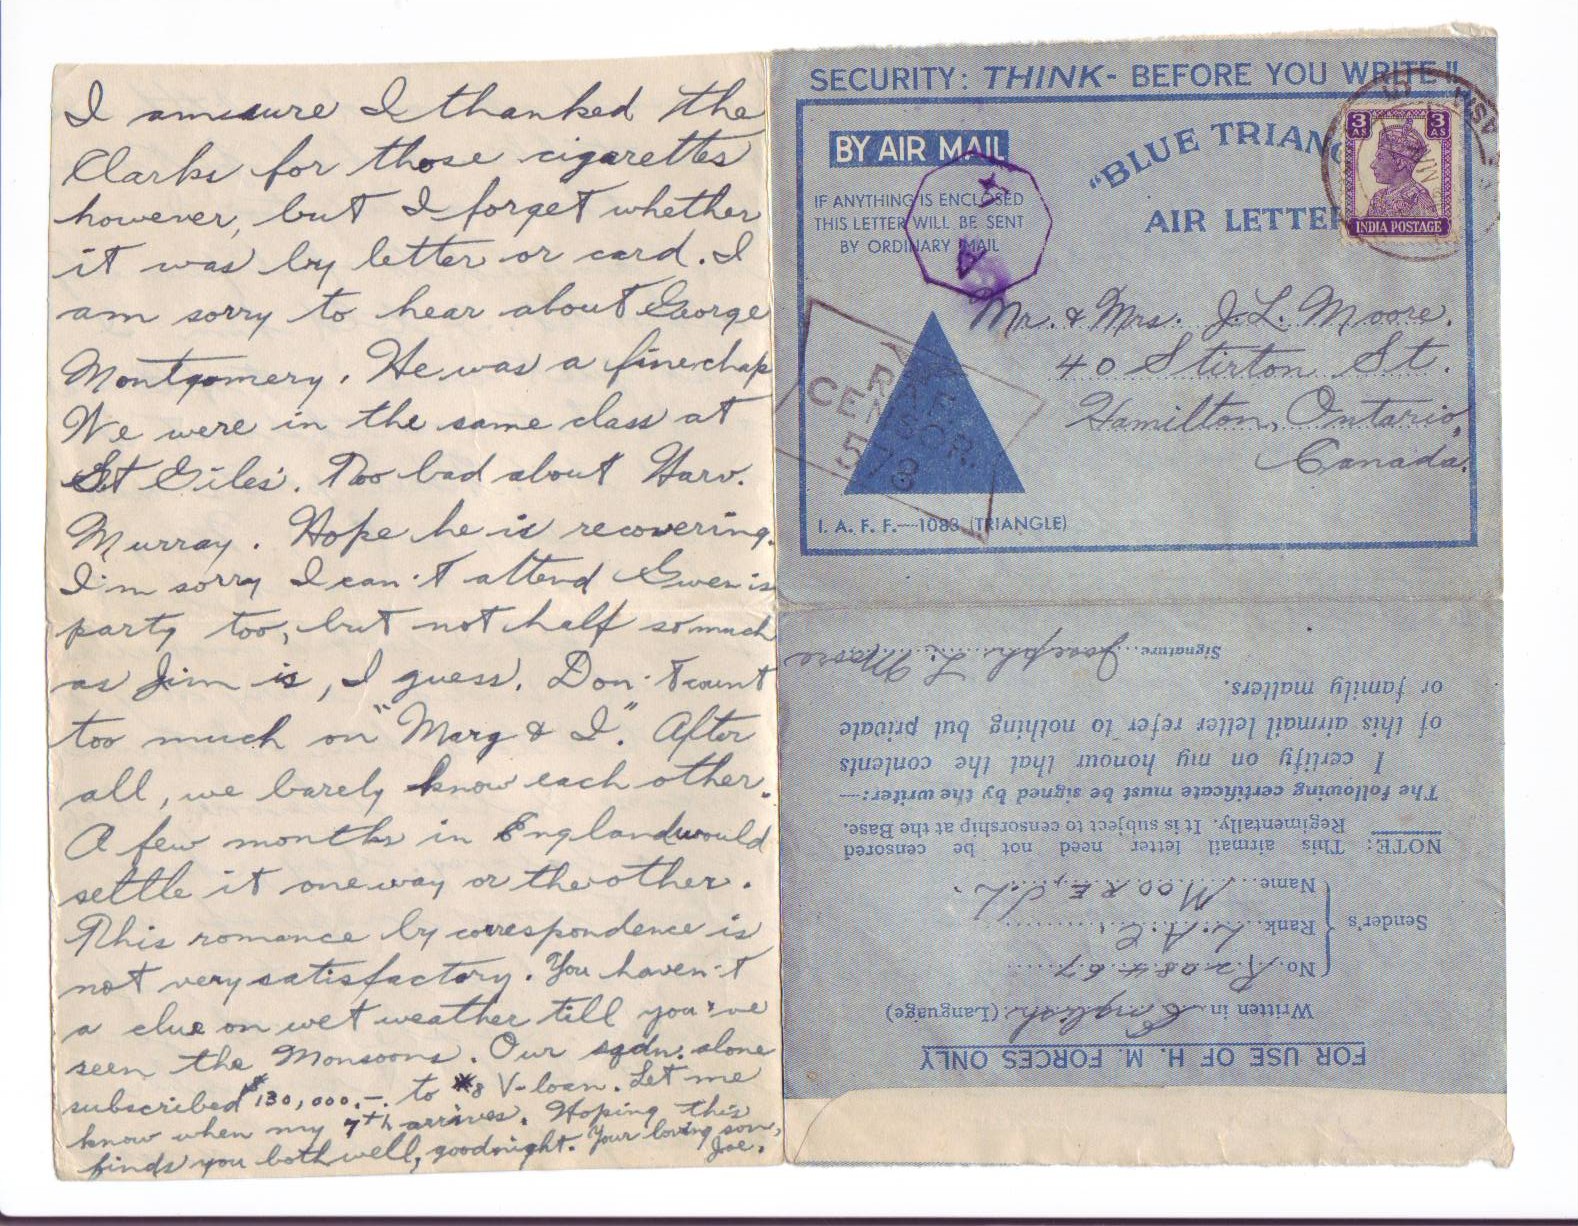 I am sure I thanked the
Clarks for those cigarettes
however, but I forget whether
it was by letter or card. I
am sorry to hear about George
Montgomery. He was a fine chap
We were in the same class at
St Giles'. Too bad about Harv.
Murray. Hope he is recovering.
I'm sorry I can't attend Gwen's
party too, but not half so much
as Jim is, I guess. Don't count
too much on "Marg & I". After
all, we barely know each other.
A few months in England would
settle it one way or the other.
This romance by correspondence is
not very satisfactory. You haven't
a clue on wet weather till you've
seen the Monsoons. Our sqdn. alone
subscribed $130,000.- to #8 V-loan. Let me
know when my 7th arrives. Hoping this
finds you both well, goodnight. Your loving son,
Joe.
SECURITY: THINK - BEFORE YOU WRITE !!
BY AIR MAIL
"BLUE TRIANG
IF ANYTHING IS ENCLOSED
THIS LETTER WILL BE SENT
BY ORDINARY MAIL
AIR LETTER
3 AS 3 AS
INDIA POSTAGE
A
Mr. & Mrs. J. L. Moore.
40 Stirton St.
Hamilton, Ontario,
Canada.
CENSOR
578
I. A. F. F.—1083 (TRIANGLE)
FOR USE OF H. M. FORCES ONLY
Written in English (Language)
Sender's
No. R208467
Rank L.A.C.
Name MOORE, J.L.
NOTE: This airmail letter need not be censored
Regimentally. It is subject to censorship at the Base.
The following certificate must be signed by the writer:—
I certify on my honour that the contents
of this airmail letter refer to nothing but private
or family matters.
Signature Joseph L. Moore